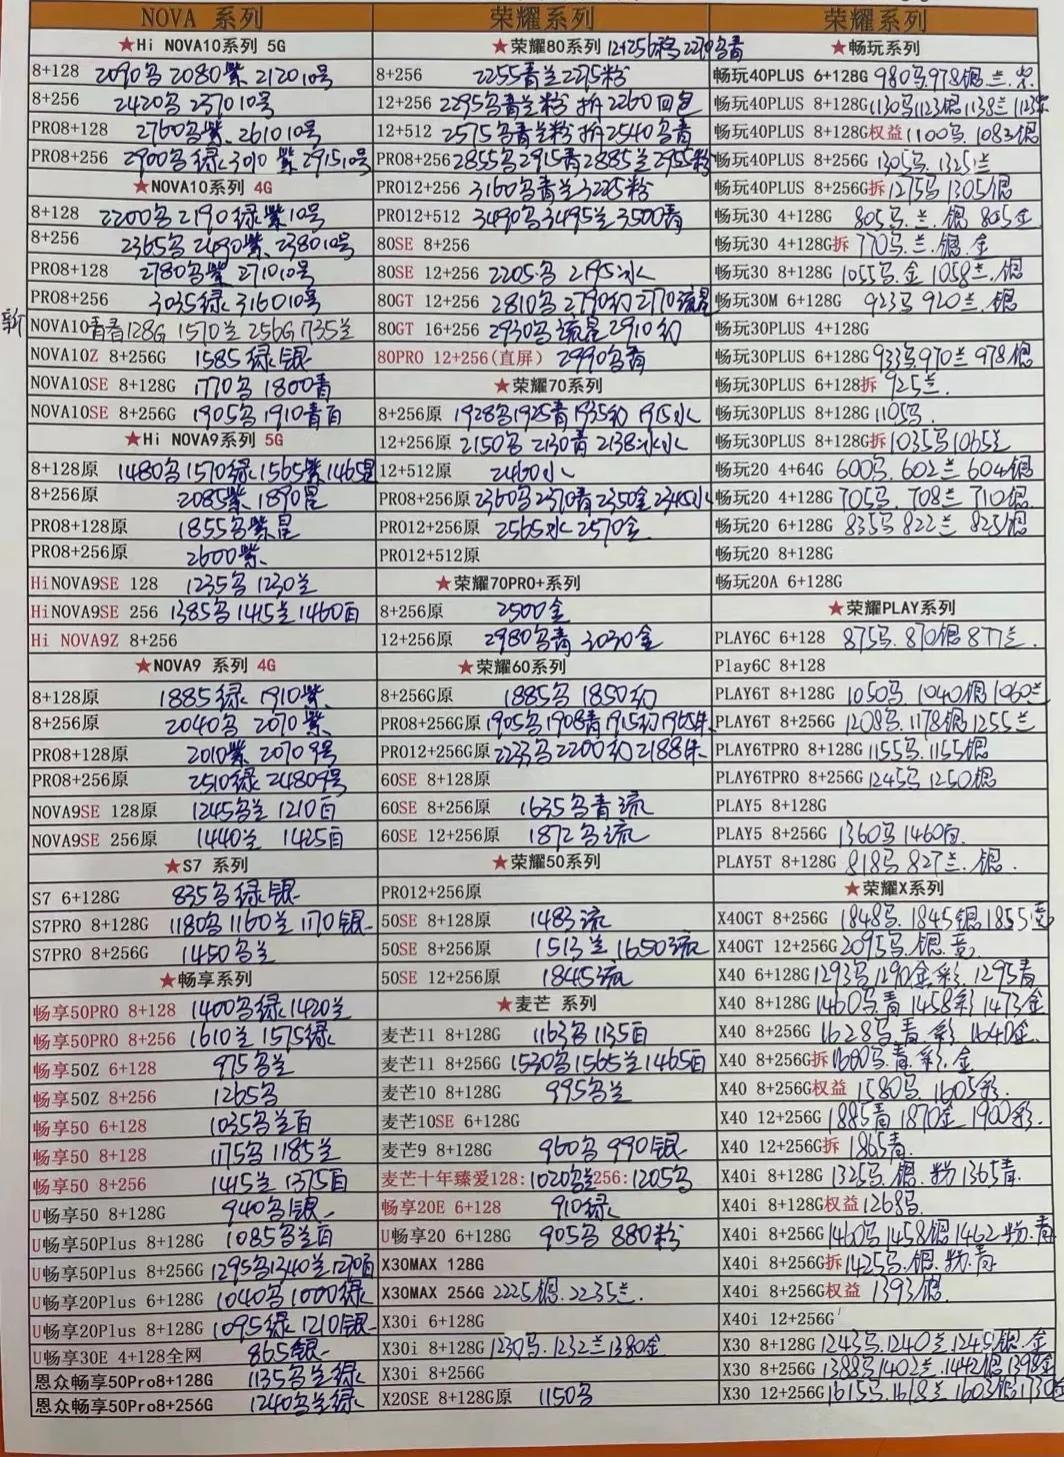 NOVA 系列
★Hi NOVA10系列 5G
8+128 2090乌 2080紫 2120 10号
8+256 2420乌 2370 10号
PRO8+128 2760乌紫 2610 10号
PRO8+256 2900乌 绿 3010 紫 2915 10号
★NOVA10系列 4G
8+128 2200乌 2190绿紫 10号
8+256 2365乌 2490紫 2380 10号
PRO8+128 2780乌紫 2710 10号
PRO8+256 3035绿 3160 10号
新
NOVA10青春128G 1570兰 256G 1735兰
NOVA10Z 8+256G 1585 绿 银
NOVA10SE 8+128G 1770乌 1800青
NOVA10SE 8+256G 1905乌 1910青白
★Hi NOVA9系列 5G
8+128原 1480乌 1570绿 1565紫 1465星
8+256原 2085紫 1890星
PRO8+128原 1855乌紫星
PRO8+256原 2600紫
HiNOVA9SE 128 1235乌 1230兰
HiNOVA9SE 256 1385乌 1415兰 1460白
Hi NOVA9Z 8+256
★NOVA9 系列 4G
8+128原 1885绿 1910紫
8+256原 2040乌 2070紫
PRO8+128原 2010紫 2070 9号
PRO8+256原 2510绿 2480 9号
NOVA9SE 128原 1245乌兰 1210白
NOVA9SE 256原 1440兰 1425白
★S7 系列
S7 6+128G 835乌绿银
S7PRO 8+128G 1180乌 1160兰 1170银
S7PRO 8+256G 1450乌兰
★畅享系列
畅享50PRO 8+128 1400乌绿 1420兰
畅享50PRO 8+256 1610兰 1575绿
畅享50Z 6+128 975乌兰
畅享50Z 8+256 1265乌
畅享50 6+128 1035乌兰白
畅享50 8+128 1175乌 1185兰
畅享50 8+256 1415兰 1375白
U畅享50 8+128G 940乌银
U畅享50Plus 8+128G 1085乌兰白
U畅享50Plus 8+256G 1295乌 1340兰 1270白
U畅享20Plus 6+128G 1040乌 1000绿
U畅享20Plus 8+128G 1095绿 1210银
U畅享30E 4+128全网 865银
恩众畅享50Pro8+128G 1135乌兰绿
恩众畅享50Pro8+256G 1240乌兰绿
荣耀系列
★荣耀80系列 12+256 2270乌青
8+256 2255青兰 2275粉
12+256 2295乌青兰粉 拆2260回包
12+512 2575乌青兰粉 拆2540乌青
PRO8+256 2855乌 2915青 2885兰 2955粉
PRO12+256 3160乌青兰 3225粉
PRO12+512 3490乌 3495兰 3500青
80SE 8+256
80SE 12+256 2205乌 2195冰
80GT 12+256 2810乌 2790幻 2770流星
80GT 16+256 2930乌流星 2910幻
80PRO 12+256(直屏) 2990乌青
★荣耀70系列
8+256原 1928乌 1925青 1935幻 1915冰
12+256原 2150乌 2130青 2138冰
12+512原 2460冰
PRO8+256原 2360乌 2370青 2350金 2345冰
PRO12+256原 2565冰 2570金
PRO12+512原
★荣耀70PRO+系列
8+256原 2500金
12+256原 2980乌青 3030金
★荣耀60系列
8+256G原 1885乌 1850幻
PRO8+256G原 1905乌 1908青 1915幻 1965朱
PRO12+256G原 2233乌 2200幻 2188朱
60SE 8+128原
60SE 8+256原 1635乌青流
60SE 12+256原 1872乌流
★荣耀50系列
PRO12+256原
50SE 8+128原 1483流
50SE 8+256原 1513兰 1650流
50SE 12+256原 1845流
★麦芒 系列
麦芒11 8+128G 1163乌 1135白
麦芒11 8+256G 1530乌 1565兰 1465白
麦芒10 8+128G 995乌兰
麦芒10SE 6+128G
麦芒9 8+128G 960乌 990银
麦芒十年臻爱128:1020乌兰256:1205乌
畅享20E 6+128 910绿
U畅享20 6+128G 905乌 880粉
X30MAX 128G
X30MAX 256G 2225银.2235兰.
X30i 6+128G
X30i 8+128G 1230乌.1232兰 1380金
X30i 8+256G
X20SE 8+128G原 1150乌
荣耀系列
★畅玩系列
畅玩40PLUS 6+128G 980乌 978银.兰.紫
畅玩40PLUS 8+128G 1130乌 1123银 1138兰 1123紫
畅玩40PLUS 8+128G权益 1100乌.1083银
畅玩40PLUS 8+256G 1305乌.1325兰
畅玩40PLUS 8+256G拆 1275乌 1305银
畅玩30 4+128G 805乌.兰.银 805金
畅玩30 4+128G拆 770乌.兰.银.金
畅玩30 8+128G 1055乌.金 1058兰.银
畅玩30M 6+128G 923乌 920兰.银
畅玩30PLUS 4+128G
畅玩30PLUS 6+128G 933乌 970兰 978银
畅玩30PLUS 6+128拆 925兰.
畅玩30PLUS 8+128G 1105乌.
畅玩30PLUS 8+128G拆 1035乌 1065兰
畅玩20 4+64G 600乌.602兰 604银
畅玩20 4+128G 705乌.708兰 710银
畅玩20 6+128G 835乌 822兰 825银
畅玩20 8+128G
畅玩20A 6+128G
★荣耀PLAY系列
PLAY6C 6+128 875乌.870银 877兰.
Play6C 8+128
PLAY6T 8+128G 1050乌 1040银 1060兰
PLAY6T 8+256G 1208乌.1178银 1255兰
PLAY6TPRO 8+128G 1155乌.1155银
PLAY6TPRO 8+256G 1245乌 1250银
PLAY5 8+128G
PLAY5 8+256G 1360乌 1460白.
PLAY5T 8+128G 818乌 827兰.银.
★荣耀X系列
X40GT 8+256G 1848乌.1845银 1855竞
X40GT 12+256G 2095乌.银.竞
X40 6+128G 1293乌 1290金.彩.1295青
X40 8+128G 1460乌.青 1458彩 1473金
X40 8+256G 1628乌.青.彩.1640金.
X40 8+256G拆 1600乌.青.彩.金
X40 8+256G权益 1580乌.1605彩.
X40 12+256G 1885青 1870金 1900彩.
X40 12+256G拆 1865青.
X40i 8+128G 1325乌.银.粉 1365青.
X40i 8+128G权益 1268乌.
X40i 8+256G 1460乌 1458银 1462粉.青
X40i 8+256G拆 1425乌.银.粉.青
X40i 8+256G权益 1393银.
X40i 12+256G
X30 8+128G 1243乌.1240兰 1245银.金
X30 8+256G 1388乌 1402兰.1442银 1398金
X30 12+256G 1615乌.1618兰 1603银